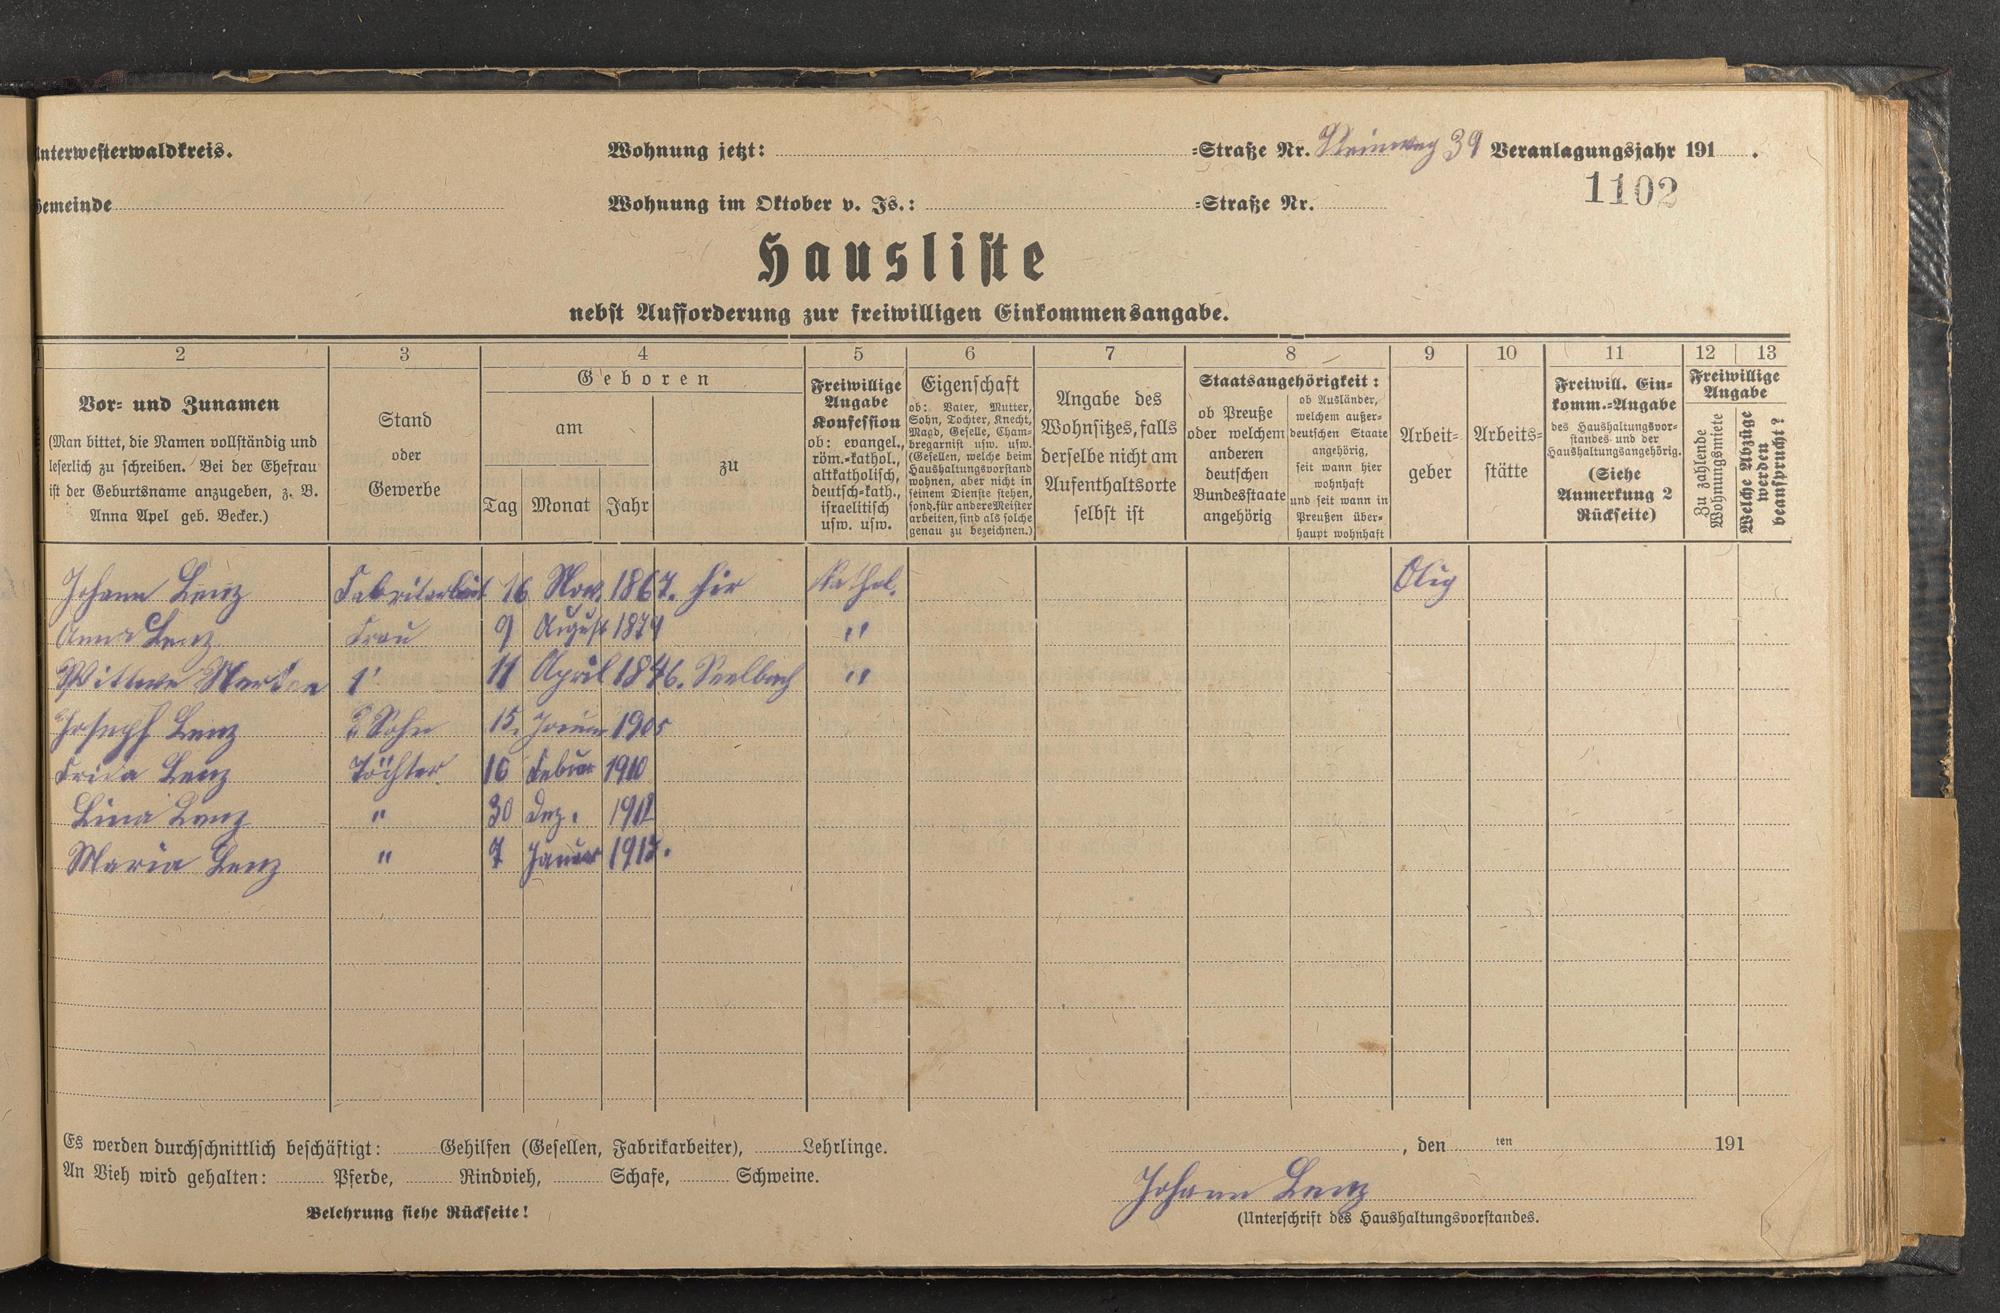 Unterwesterwaldkreis.
Wohnung jetzt: -Straße Nr. Steinweg 39 Veranlagungsjahr 191 .
1102
Gemeinde Wohnung im Oktober v. Js.: -Straße Nr.
Hausliste
nebst Aufforderung zur freiwilligen Einkommensangabe.
2 3 4 5 6 7 8 9 10 11 12 13
Vor- und Zunamen
(Man bittet, die Namen vollständig und
leserlich zu schreiben. Bei der Ehefrau
ist der Geburtsname anzugeben, z. B.
Anna Apel geb. Becker.)
Stand
oder
Gewerbe
Geboren
am
zu
Tag Monat Jahr
Freiwillige
Angabe
Konfession
ob: evangel.,
röm.-kathol.,
altkatholisch,
deutsch-kath.,
israelitisch
usw. usw.
Eigenschaft
ob: Vater, Mutter,
Sohn, Tochter, Knecht,
Magd, Geselle, Cham-
bregarnist usw. usw.
(Gesellen, welche beim
Haushaltungsvorstand
wohnen, aber nicht in
seinem Dienste stehen,
sond. für andere Meister
arbeiten, sind als solche
genau zu bezeichnen.)
Angabe des
Wohnsitzes, falls
derselbe nicht am
Aufenthaltsorte
selbst ist
Staatsangehörigkeit:
ob Preuße
oder welchem
anderen
deutschen
Bundesstaate
angehörig
ob Ausländer,
welchem außer-
deutschen Staate
angehörig,
seit wann hier
wohnhaft
und seit wann in
Preußen über-
haupt wohnhaft
Arbeit-
geber
Arbeits-
stätte
Freiwill. Ein-
komm.-Angabe
des Haushaltungsvor-
standes und der
Haushaltungsangehörig.
(Siehe
Anmerkung 2
Rückseite)
Freiwillige
Angabe
Zu zahlende
Wohnungsmiete
Welche Abzüge
werden
beansprucht?
Johann Lenz Fabrikarbeit 16 Nov. 1867. hir Kathol. Olig
Anna Lenz Frau 9 August 1879 "
Wittwe 11 April 1846. Seelbach "
Joseph Lenz Sohn 15. 1905
Frida Lenz Töchter 16 Febur 1910
Lina Lenz " 30 Dez.
Maria Lenz " 7 Januar
Es werden durchschnittlich beschäftigt: Gehilfen (Gesellen, Fabrikarbeiter), Lehrlinge.
An Vieh wird gehalten: Pferde, Rindvieh, Schafe, Schweine.
Belehrung siehe Rückseite!
, den ten 191
Johann Lenz
(Unterschrift des Haushaltungsvorstandes.